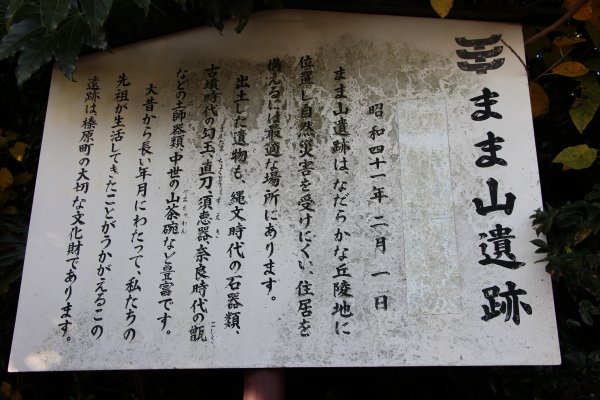 まま山遺跡
昭和四十一年二月一日
まま山遺跡は、なだらかな丘陵地に
位置し自然災害を受けにくい、住居を
構えるには最適な場所にあります。
出土した遺物も、縄文時代の石器類、
古墳時代の勾玉、直刀、須恵器、奈良時代の甑
などの土師器類、中世の山茶碗など豊富です。
大昔から長い年月にわたって、私たちの
先祖が生活してきたことがうかがえるこの
遺跡は榛原町の大切な文化財であります。